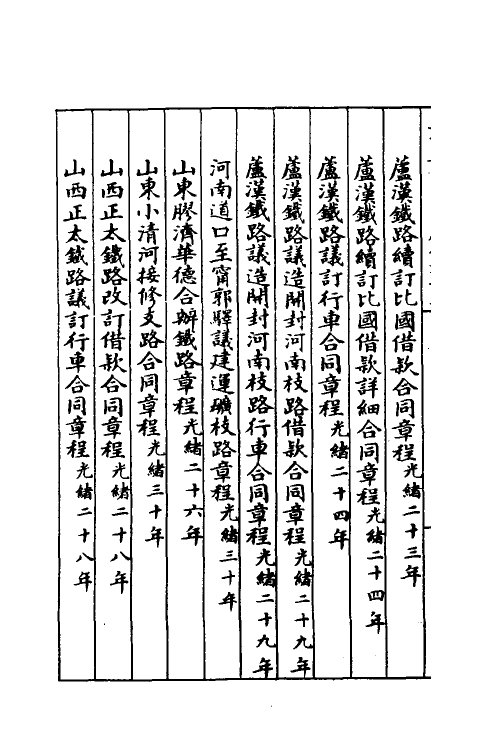 蘆漢鐵路續訂比國借款合同章程光緒二十三年
蘆漢鐵路續訂比國借款詳細合同章程光緒二十四年
蘆漢鐵路議訂行車合同章程光緒二十四年
蘆漢鐵路議造開封河南枝路借款合同章程光緒二十九年
蘆漢鐵路議造開封河南枝路行車合同章程光緒二十九年
河南道口至甯郭驛議建運礦枝路章程光緒三十年
山東膠濟華德合辦鐵路章程光緒二十六年
山東小清河接修支路合同章程光緒三十年
山西正太鐵路改訂借款合同章程光緒二十八年
山西正太鐵路議訂行車合同章程光緒二十八年